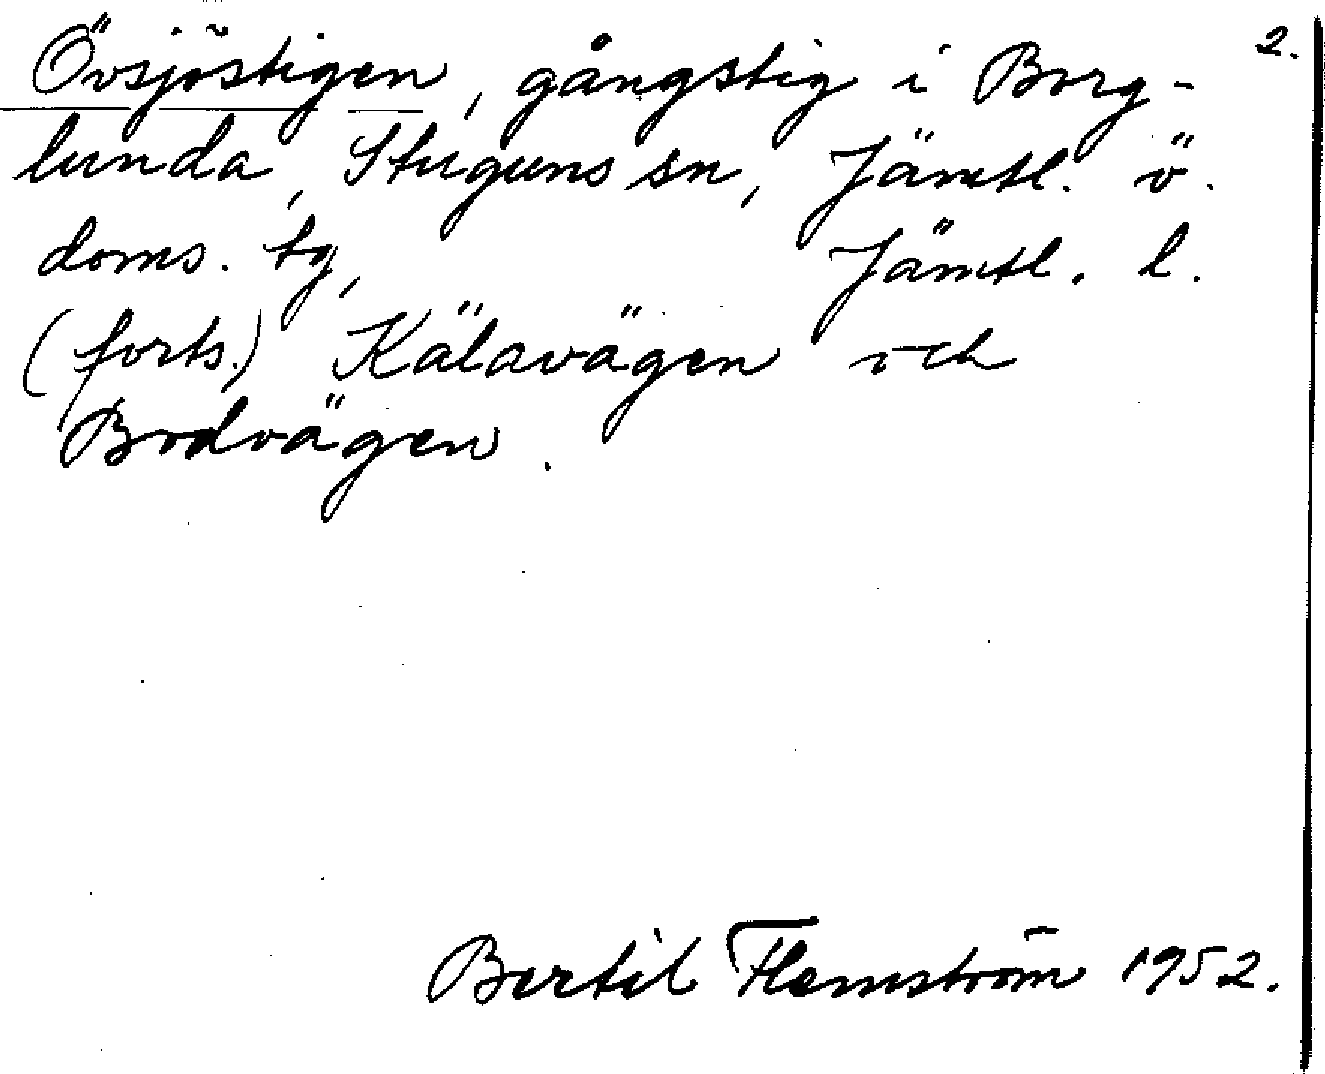 Övsjöstigen, gångstig i Borg- 2.
lunda, Stuguns sn, Jämtl. ö.
doms. tg, Jämtl. l.
(forts.) Kälavägen och
Bodvägen.
Bertil Flemström 1952.